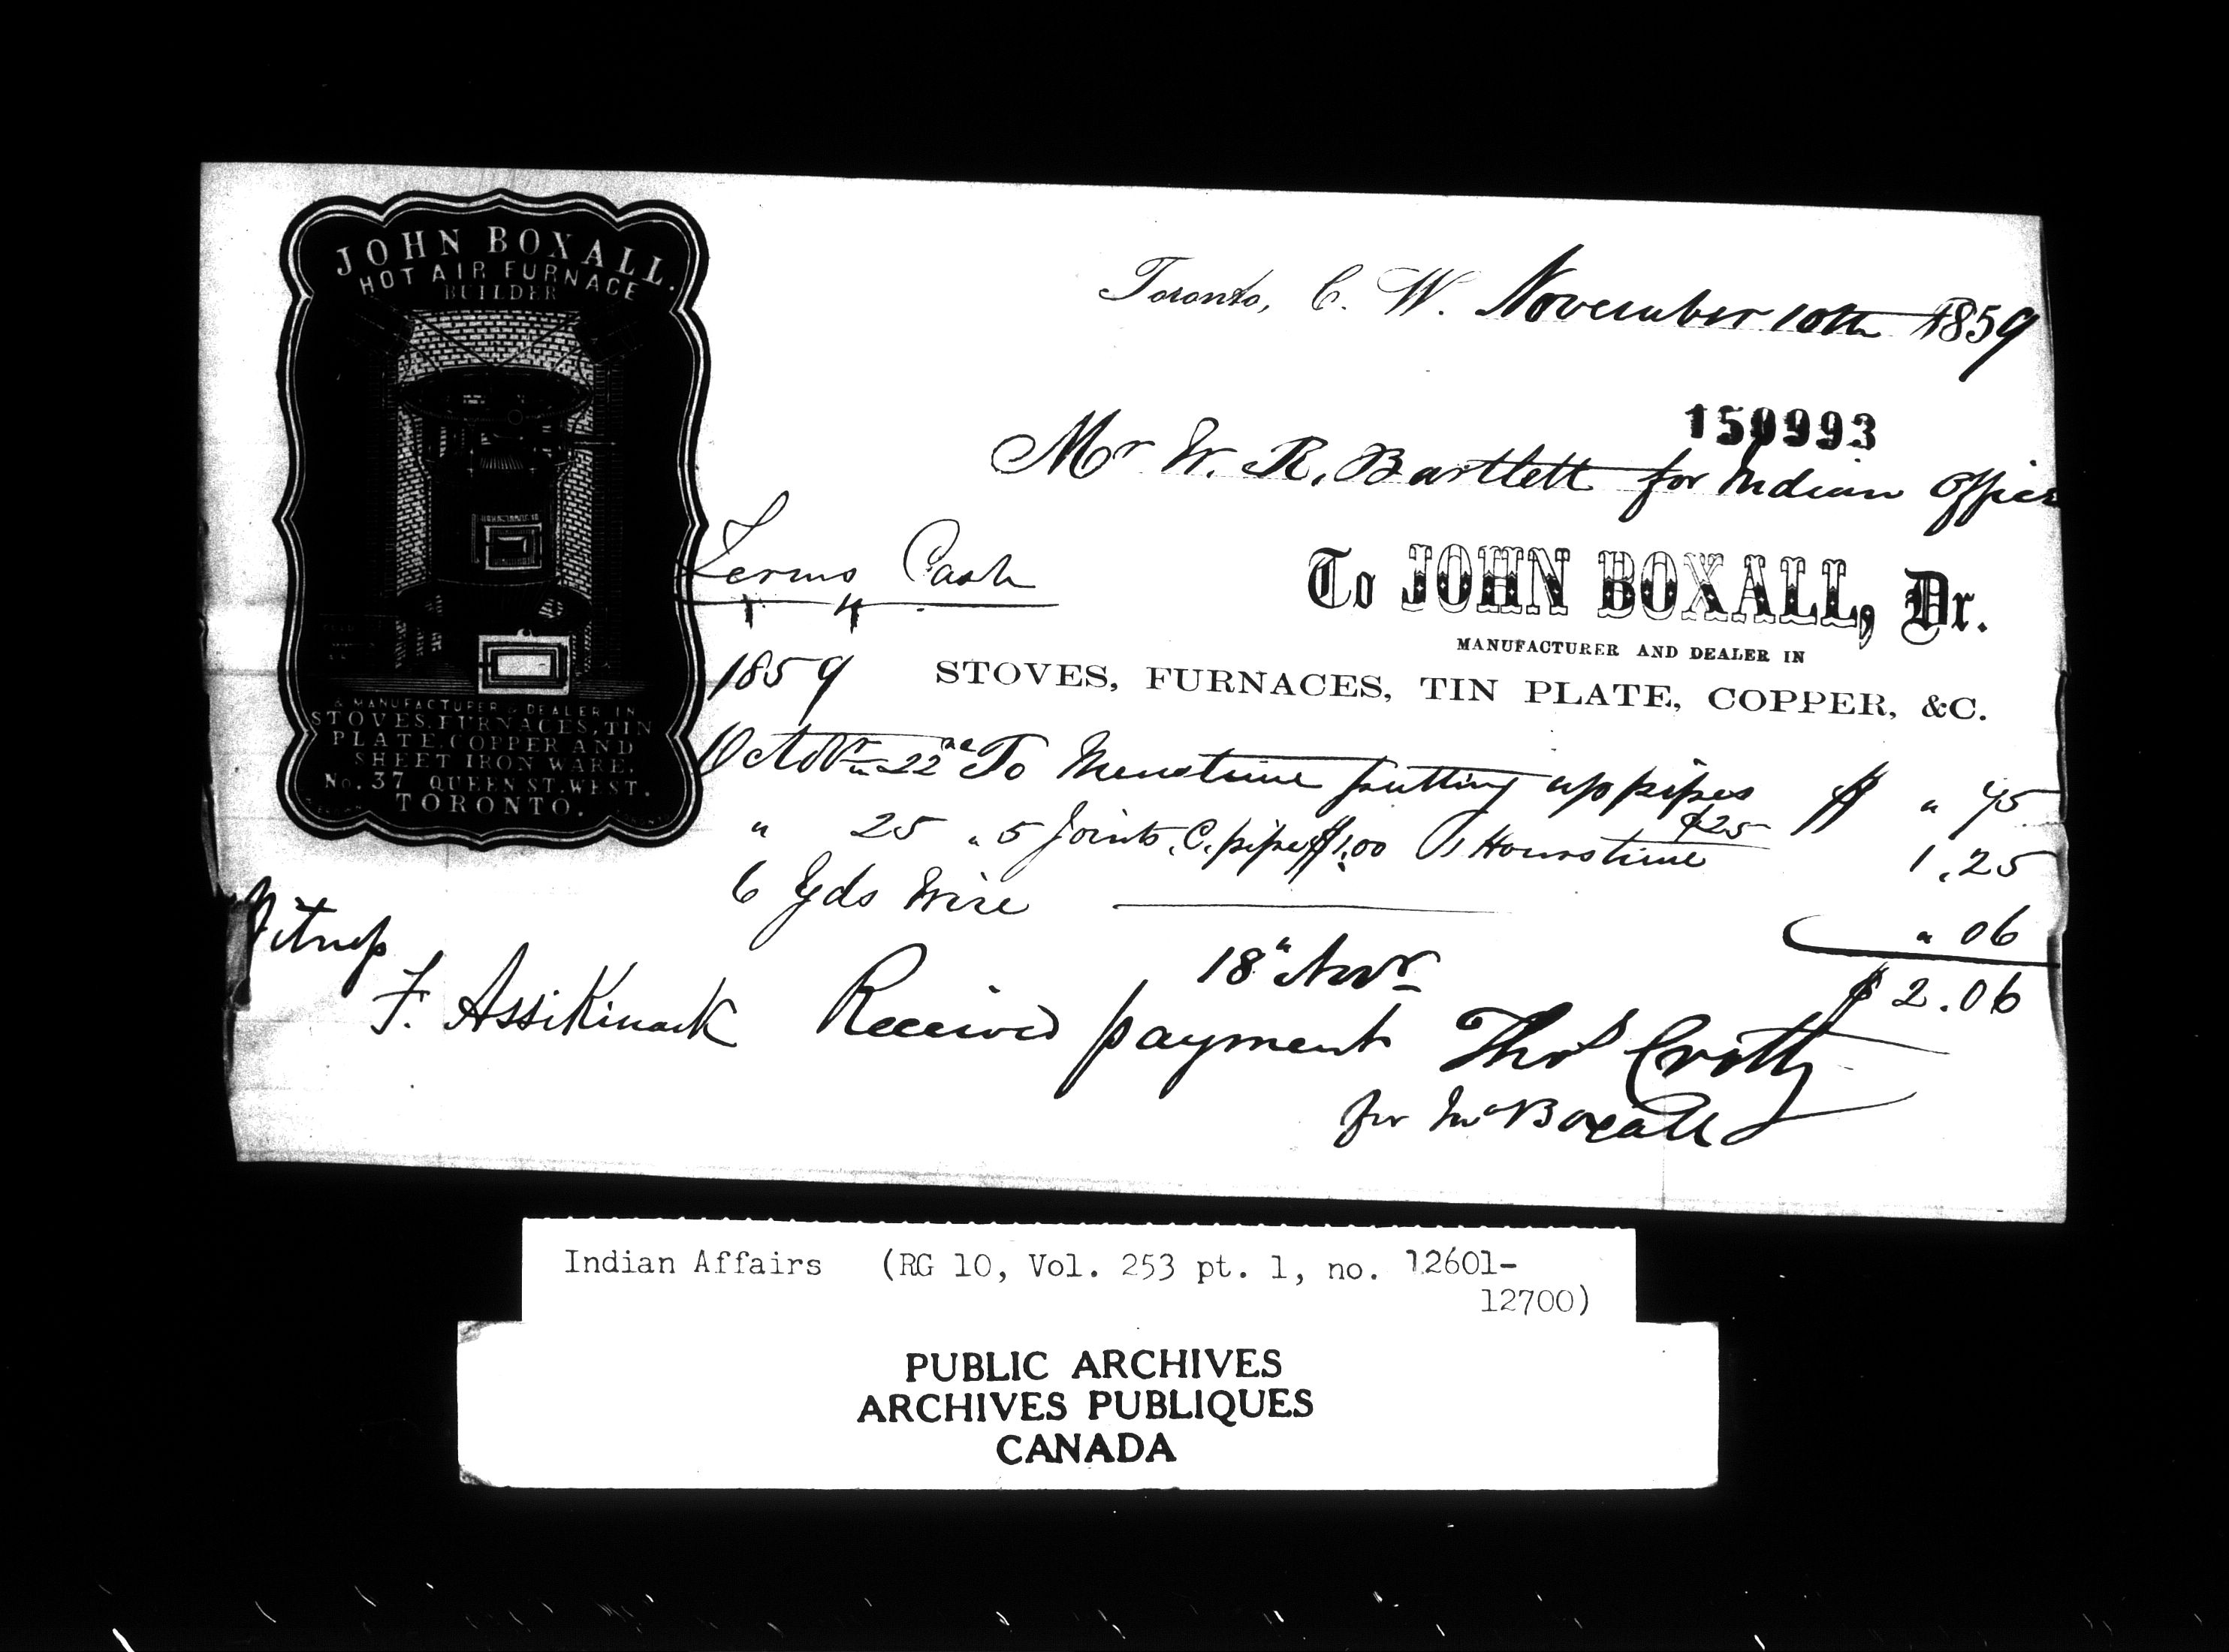 JOHN BOXALL.
HOT AIR FURNACE
BUILDER
& MANUFACTURER & DEALER IN
STOVES, FURNACES, TIN
PLATE, COPPER AND
SHEET IRON WARE.
No. 37 QUEEN ST. WEST.
TORONTO.
Toronto, C. W. November 10th 1859
150993
Mr W. R. Bartlett for Indian Office
Terms Cash
To JOHN BOXALL, Dr.
MANUFACTURER AND DEALER IN
1859 STOVES, FURNACES, TIN PLATE, COPPER, &C.
Octobr 22 To Menstime putting up pipes $ " 75
" 25 " 5 Joints C. pipe $1.00 1 Hours time $25 1.25
6 Yds Wire " 06
$ 2.06
Witness
18" Novr
F. Assikinack Received payment Thos Crotty
for Mr Boxall
Indian Affairs (RG 10, Vol. 253 pt. 1, no. 12601-
12700)
PUBLIC ARCHIVES
ARCHIVES PUBLIQUES
CANADA